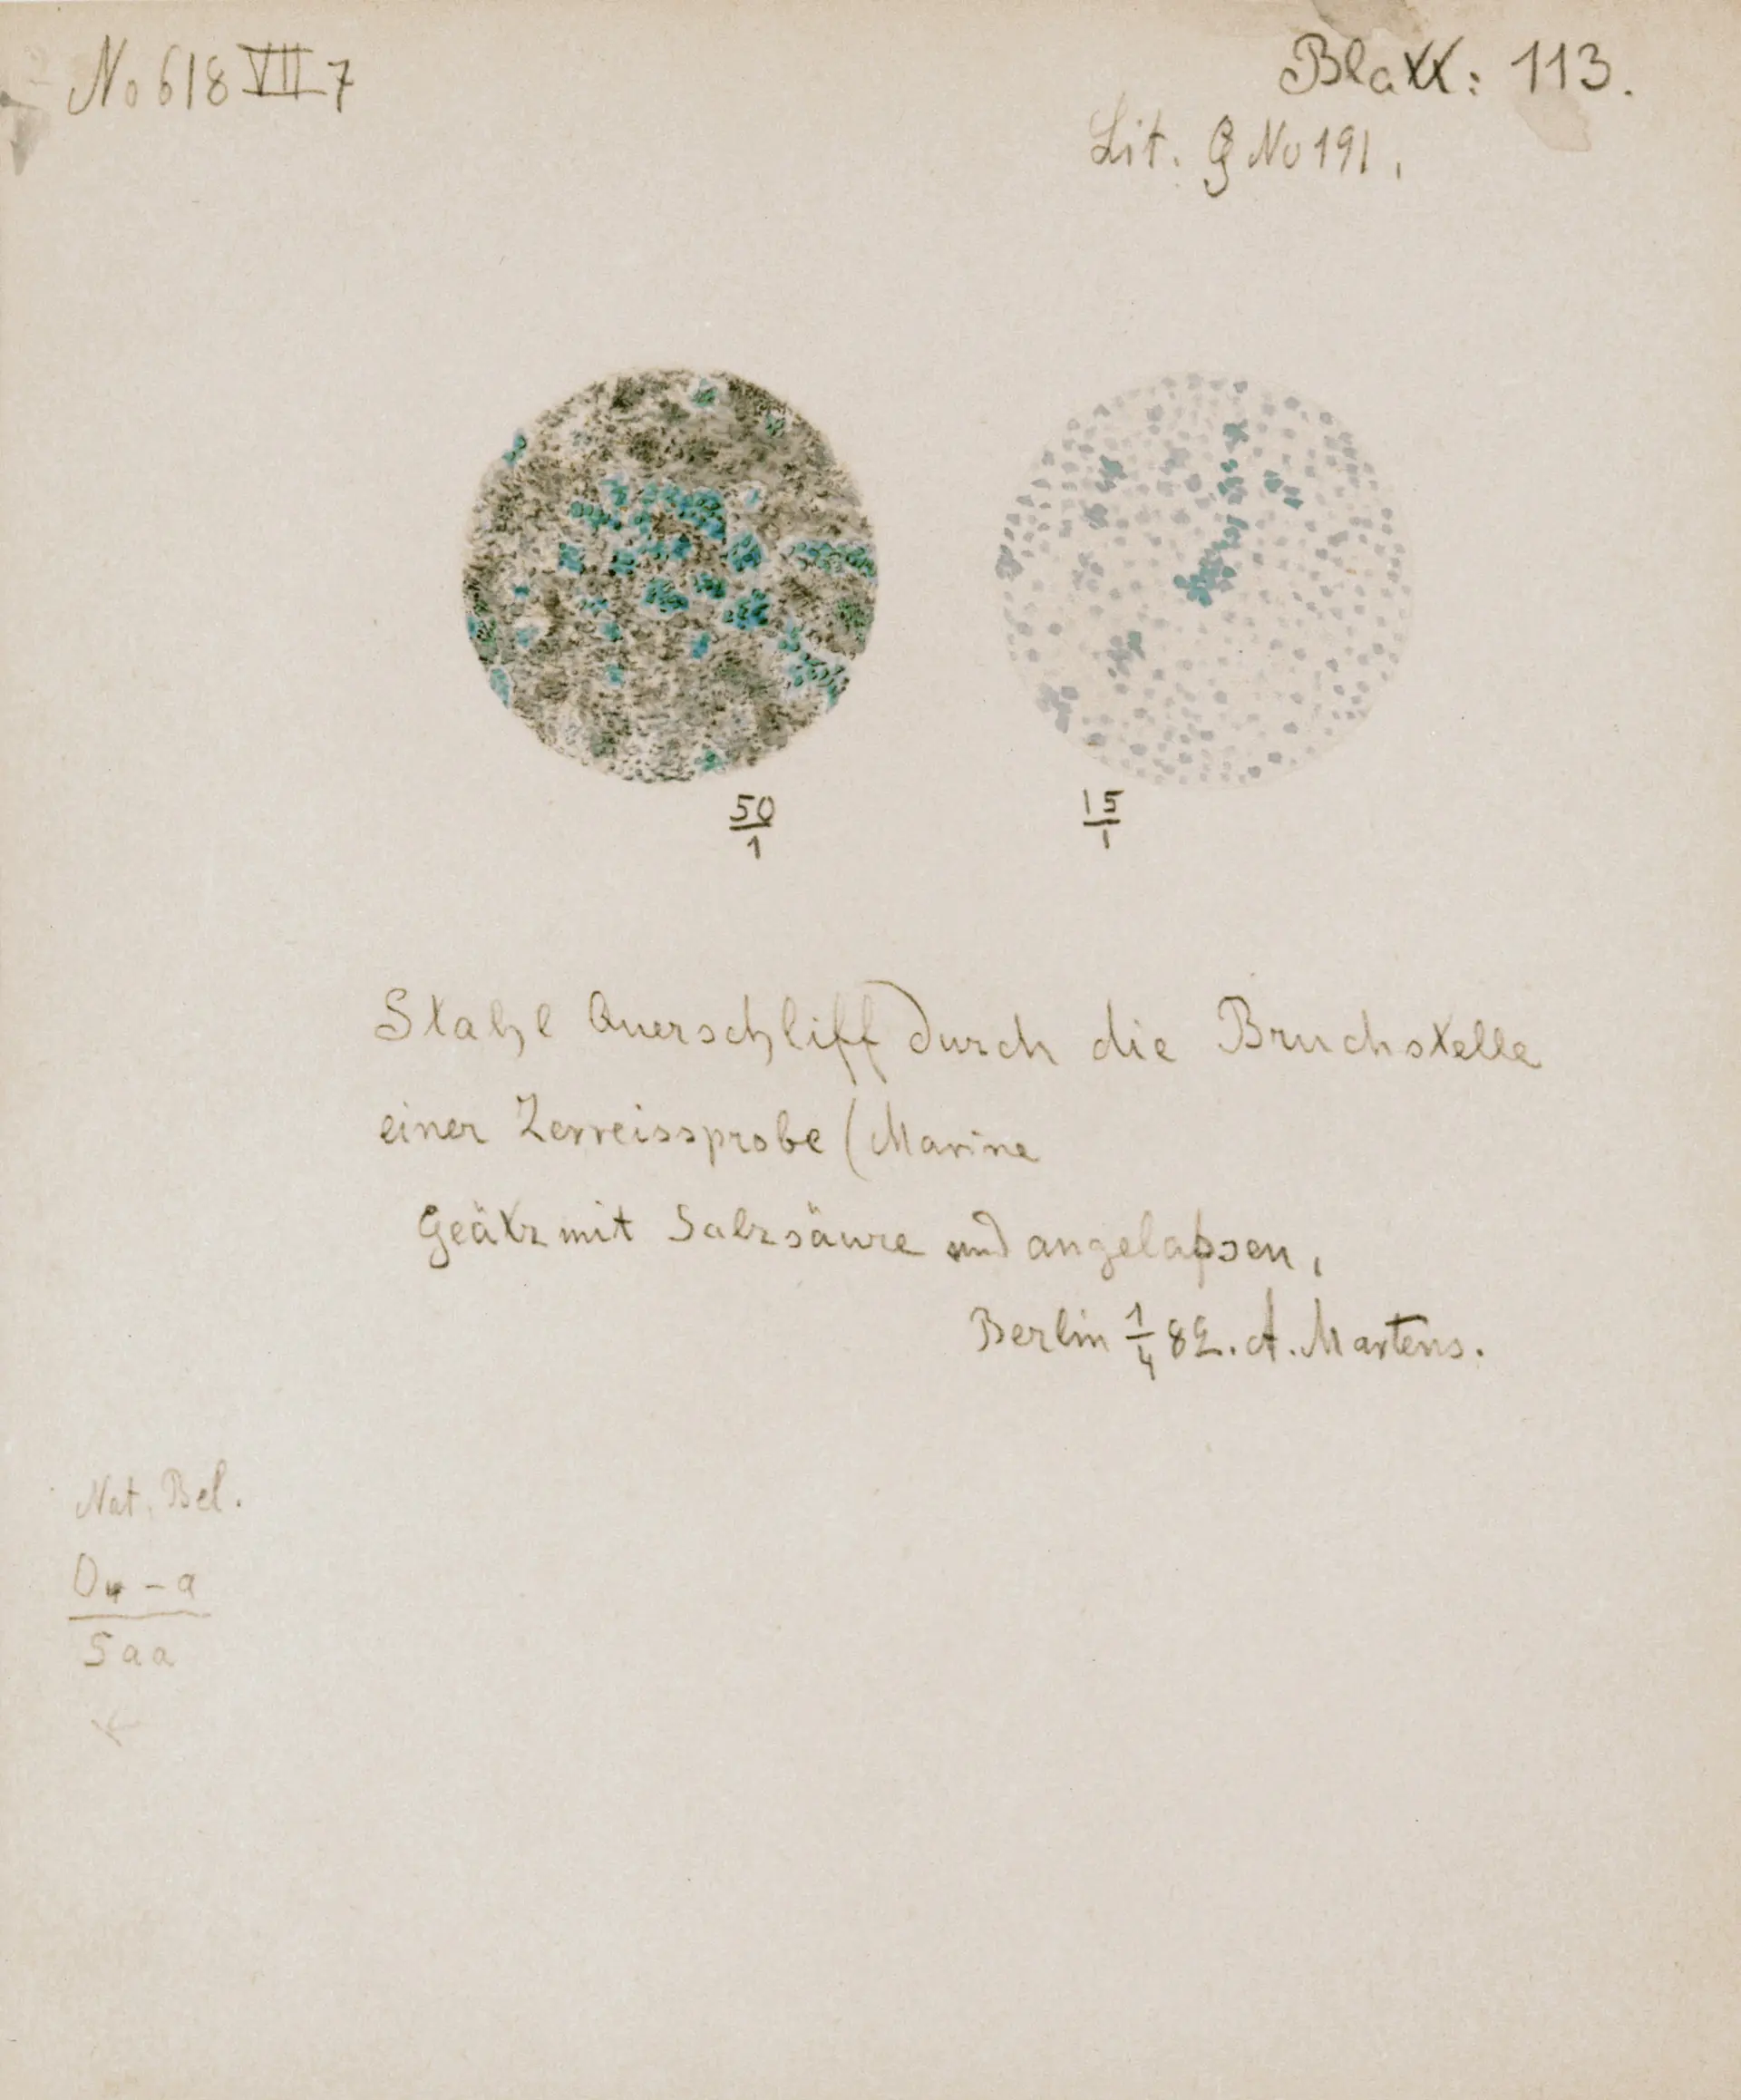 No 618 VII 7
Blatt: 113.
Lit. G No 191.
50/1
15/1
Stahl Querschliff durch die Bruchstelle
einer Zerreissprobe (Marine
Geätz mit Salzsäure und angelassen,
Berlin 1/4 82. A. Martens.
Nat. Bel.
04 - a
5 a a